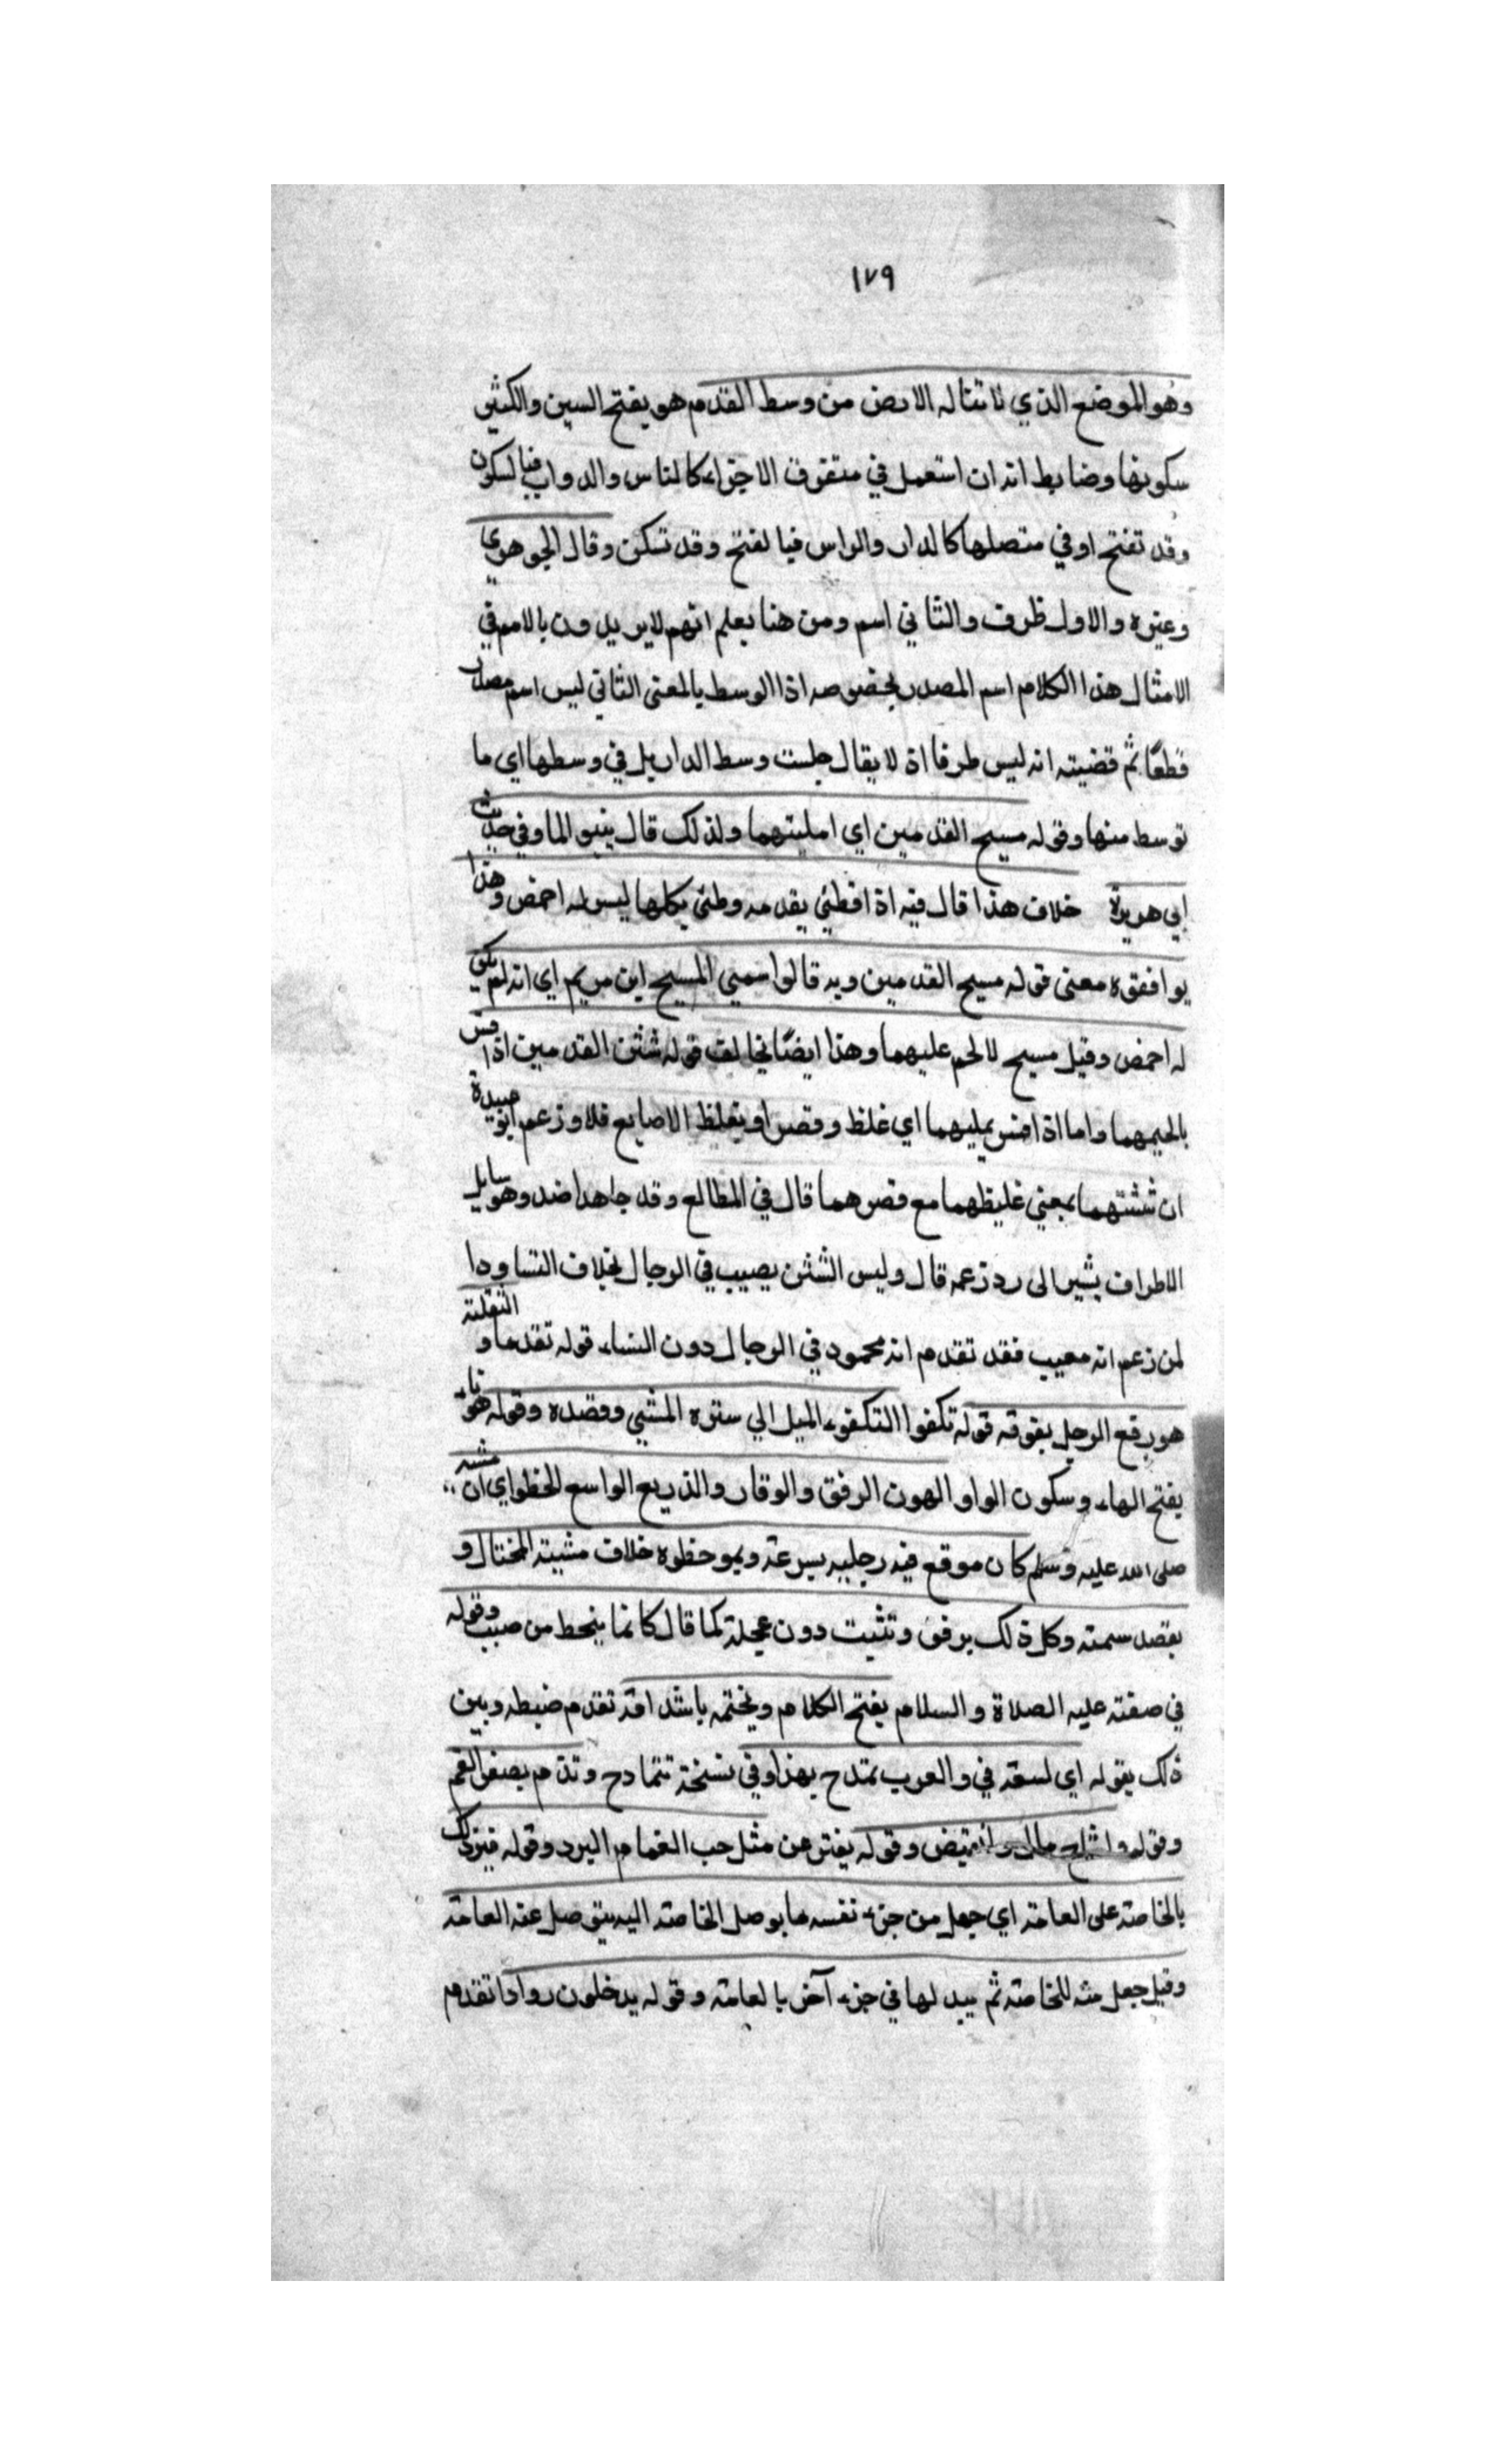 ١٧٩
وهو الموضع الذي لا تناله الارض من وسط القدم هو بفتح السين والكثير
سكونها وضابط انه ان استعمل في متفرق الاجزاء كالناس والدواب فبالسكون
وقد تفتح او في متصلها كالدار والراس فبالفتح وقد تسكن وقال الجوهري
وغيره والاول ظرف والثاني اسم ومن هنا يعلم انهم لا يريدون بالاسم في
الامثال هذا الكلام اسم المصدر بخصوصه اذ الوسط بالمعنى الثاني ليس اسم مصدر
قطعًا ثم قضيته انه ليس ظرفا اذ لا يقال جلست وسط الدار بل في وسطها اي ما
توسط منها وقوله مسيح القدمين اي امليتهما ولذلك قال ينبو الما وفي حديث
ابي هريرة خلاف هذا قال فيه اذا وطئ بقدمه وطئ بكلها ليس له اخمص وهذا
يوافقه معنى قوله مسيح القدمين وبه قالوا سمي المسيح ابن مريم اي انه لم يكن
له اخمص وقيل مسيح لا لحم عليهما وهذا ايضًا يخالف قوله شثن القدمين اذا فسر
بالحيمهما واما اذا فسر بميلهما اي غلظ وقصر او بغلظ الاصابع فلا وزعم ابو عبيدة
ان شثنهما بمعنى غليظهما مع قصرهما قال في المطالع وقد جاهدا ضد وهو سايل
الاطراف يشير الى رد زعمه قال وليس الشثن يصيب في الرجال بخلاف النسا ودا
لمن زعم انه معيب فقد تقدم انه محمود في الرجال دون النساء قوله تقدما و التقلة
هو رفع الرجل بقوة قوله تكفوا التكفوء الميل الي سنن المشي وقصده وقوله هونا
بفتح الهاء وسكون الواو الهون الرفق والوقار والذريع الواسع الخطو اي ان مشيه
صلى الله عليه وسلم كان موقع فيه رجليه بسرعة ويمد خطوه خلاف مشية المختال و
يقصد سمته وكل ذلك برفق وتثبت دون عجلة كما قال كانما ينحط من صبب وقوله
في صفته عليه الصلاة والسلام يفتح الكلام ويختمه باشداقه تقدم ضبطه وبين
ذلك بقوله اي لسعة في والعرب تمتدح بهذا وفي نسخة تتمادح وتذم بصغر الفم
وقوله واشاح مال وانقبض وقوله يفتر عن مثل حب الغمام البرد وقوله فيرد ذلك
بالخاصة على العامة اي جعل من جزء نفسه ما يوصل الخاصة اليه يتوصل عنه العامة
وقيل جعل منه للخاصة ثم يبدلها في جزء آخر بالعامة وقوله يدخلون روادا تقدم